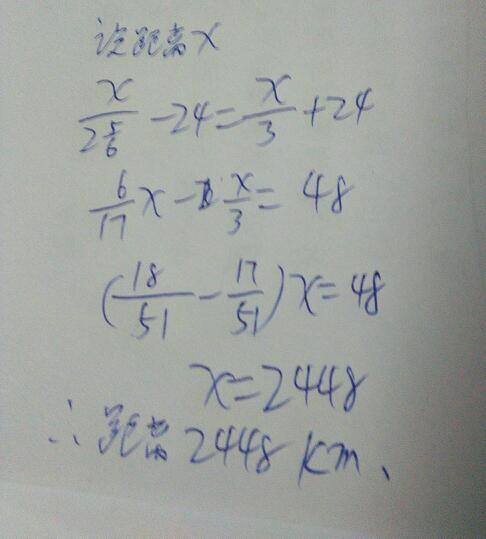 设距离x
x/2 5/6 -24=x/3+24
6/17 x-x/3=48
(18/51-17/51)x=48
x=2448
∴距离2448km、